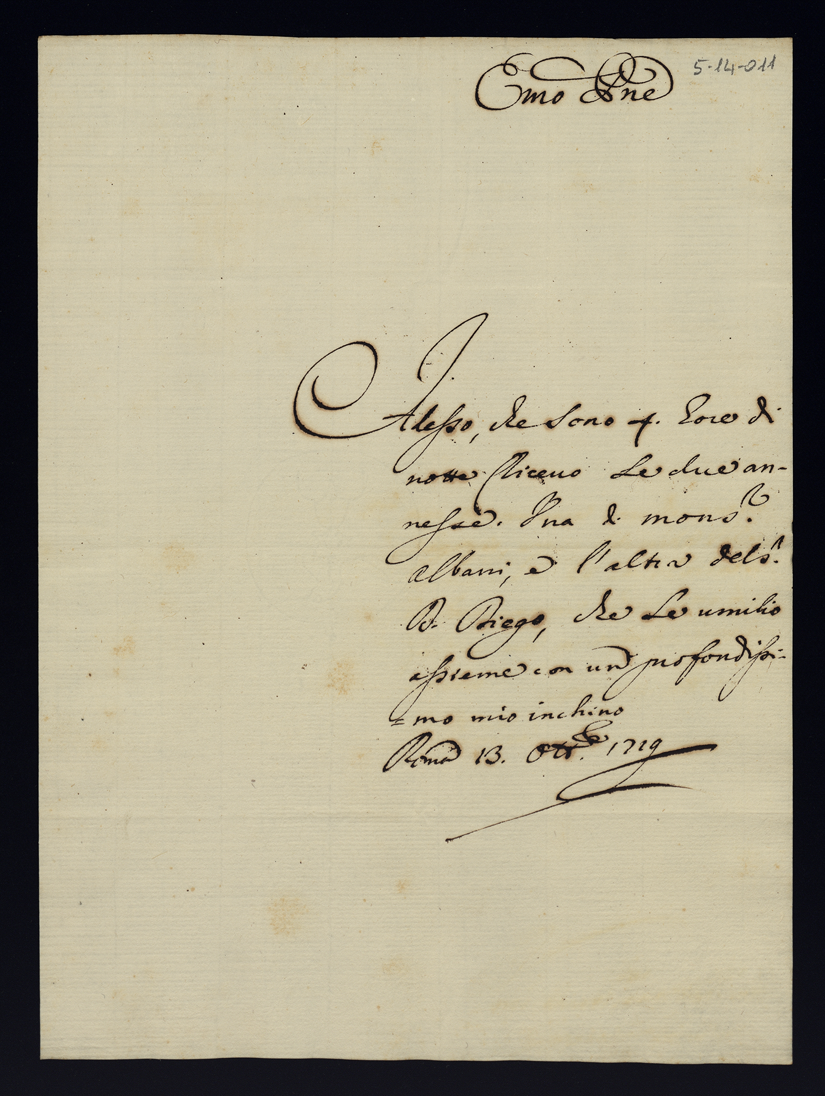 Emo Pne
5-14-011
Adesso, che sono 4. hore di
notte Ricevo le due an-
nesse. Una di mons.r
Albani, e l'altra del s.r
D. Diego, che le umilio
assieme con un profondissi-
=mo mio inchino
Roma 13. Ott.re 1719